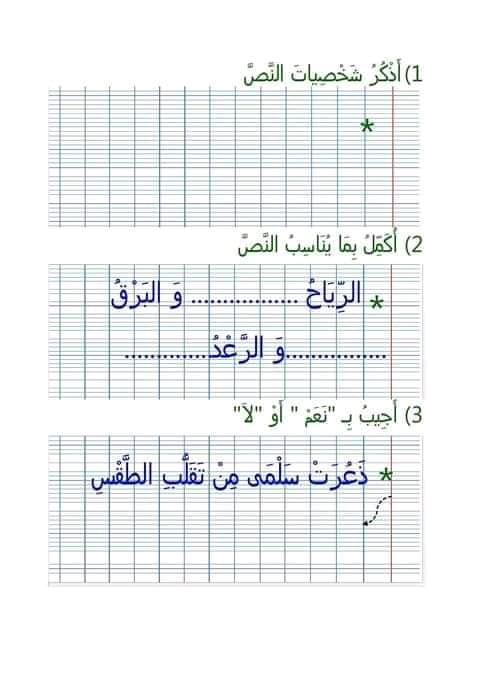 1) أَذْكُرُ شَخْصِياتَ النَّصَّ
*
2) أُكَمِّلُ بِمَا يُنَاسِبُ النَّصَّ
* الرِّيَاحُ ................. وَ البَرْقُ
................وَ الرَّعْدُ..............
3) أُجِيبُ بِـ "نَعَمْ " أَوْ "لاَ"
* ذَعُرَتْ سَلْمَى مِنْ تَقَلُّبِ الطَّقْسِ